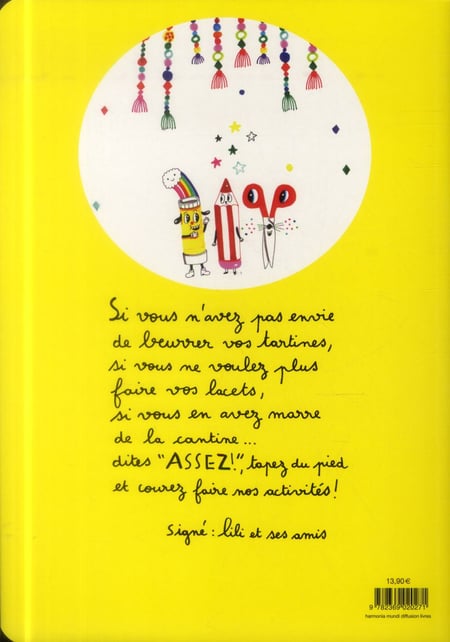 Si vous n'avez pas envie
de beurrer vos tartines,
si vous ne voulez plus
faire vos lacets,
si vous en avez marre
de la cantine...
dites "ASSEZ!", tapez du pied
et courez faire nos activités!
Signé : lili et ses amis
13,90 €
9 782369 020271
harmonia mundi diffusion livres